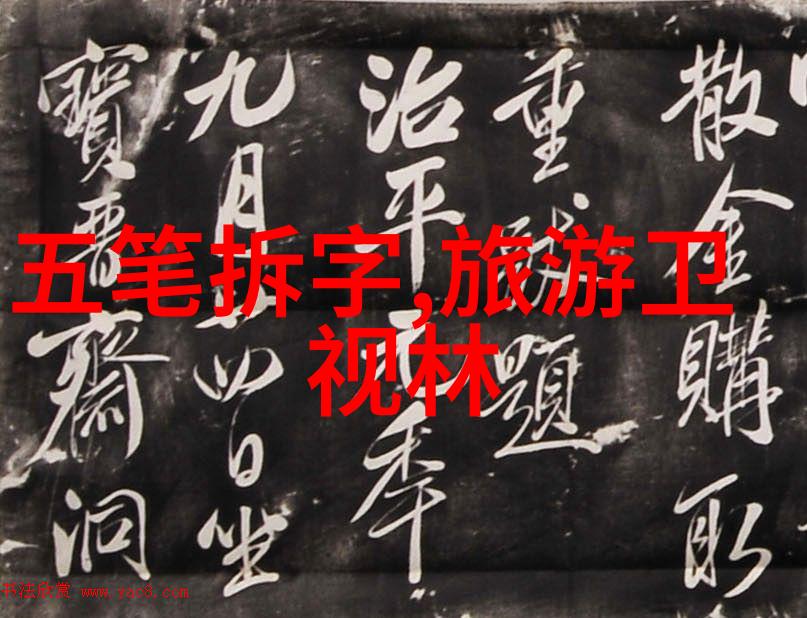 五笔拆字,旅游卫
视林
散金購取
重題
治平元年
九月廿四日坐
寶晋齋洞
书法欣赏 www.yac8.com